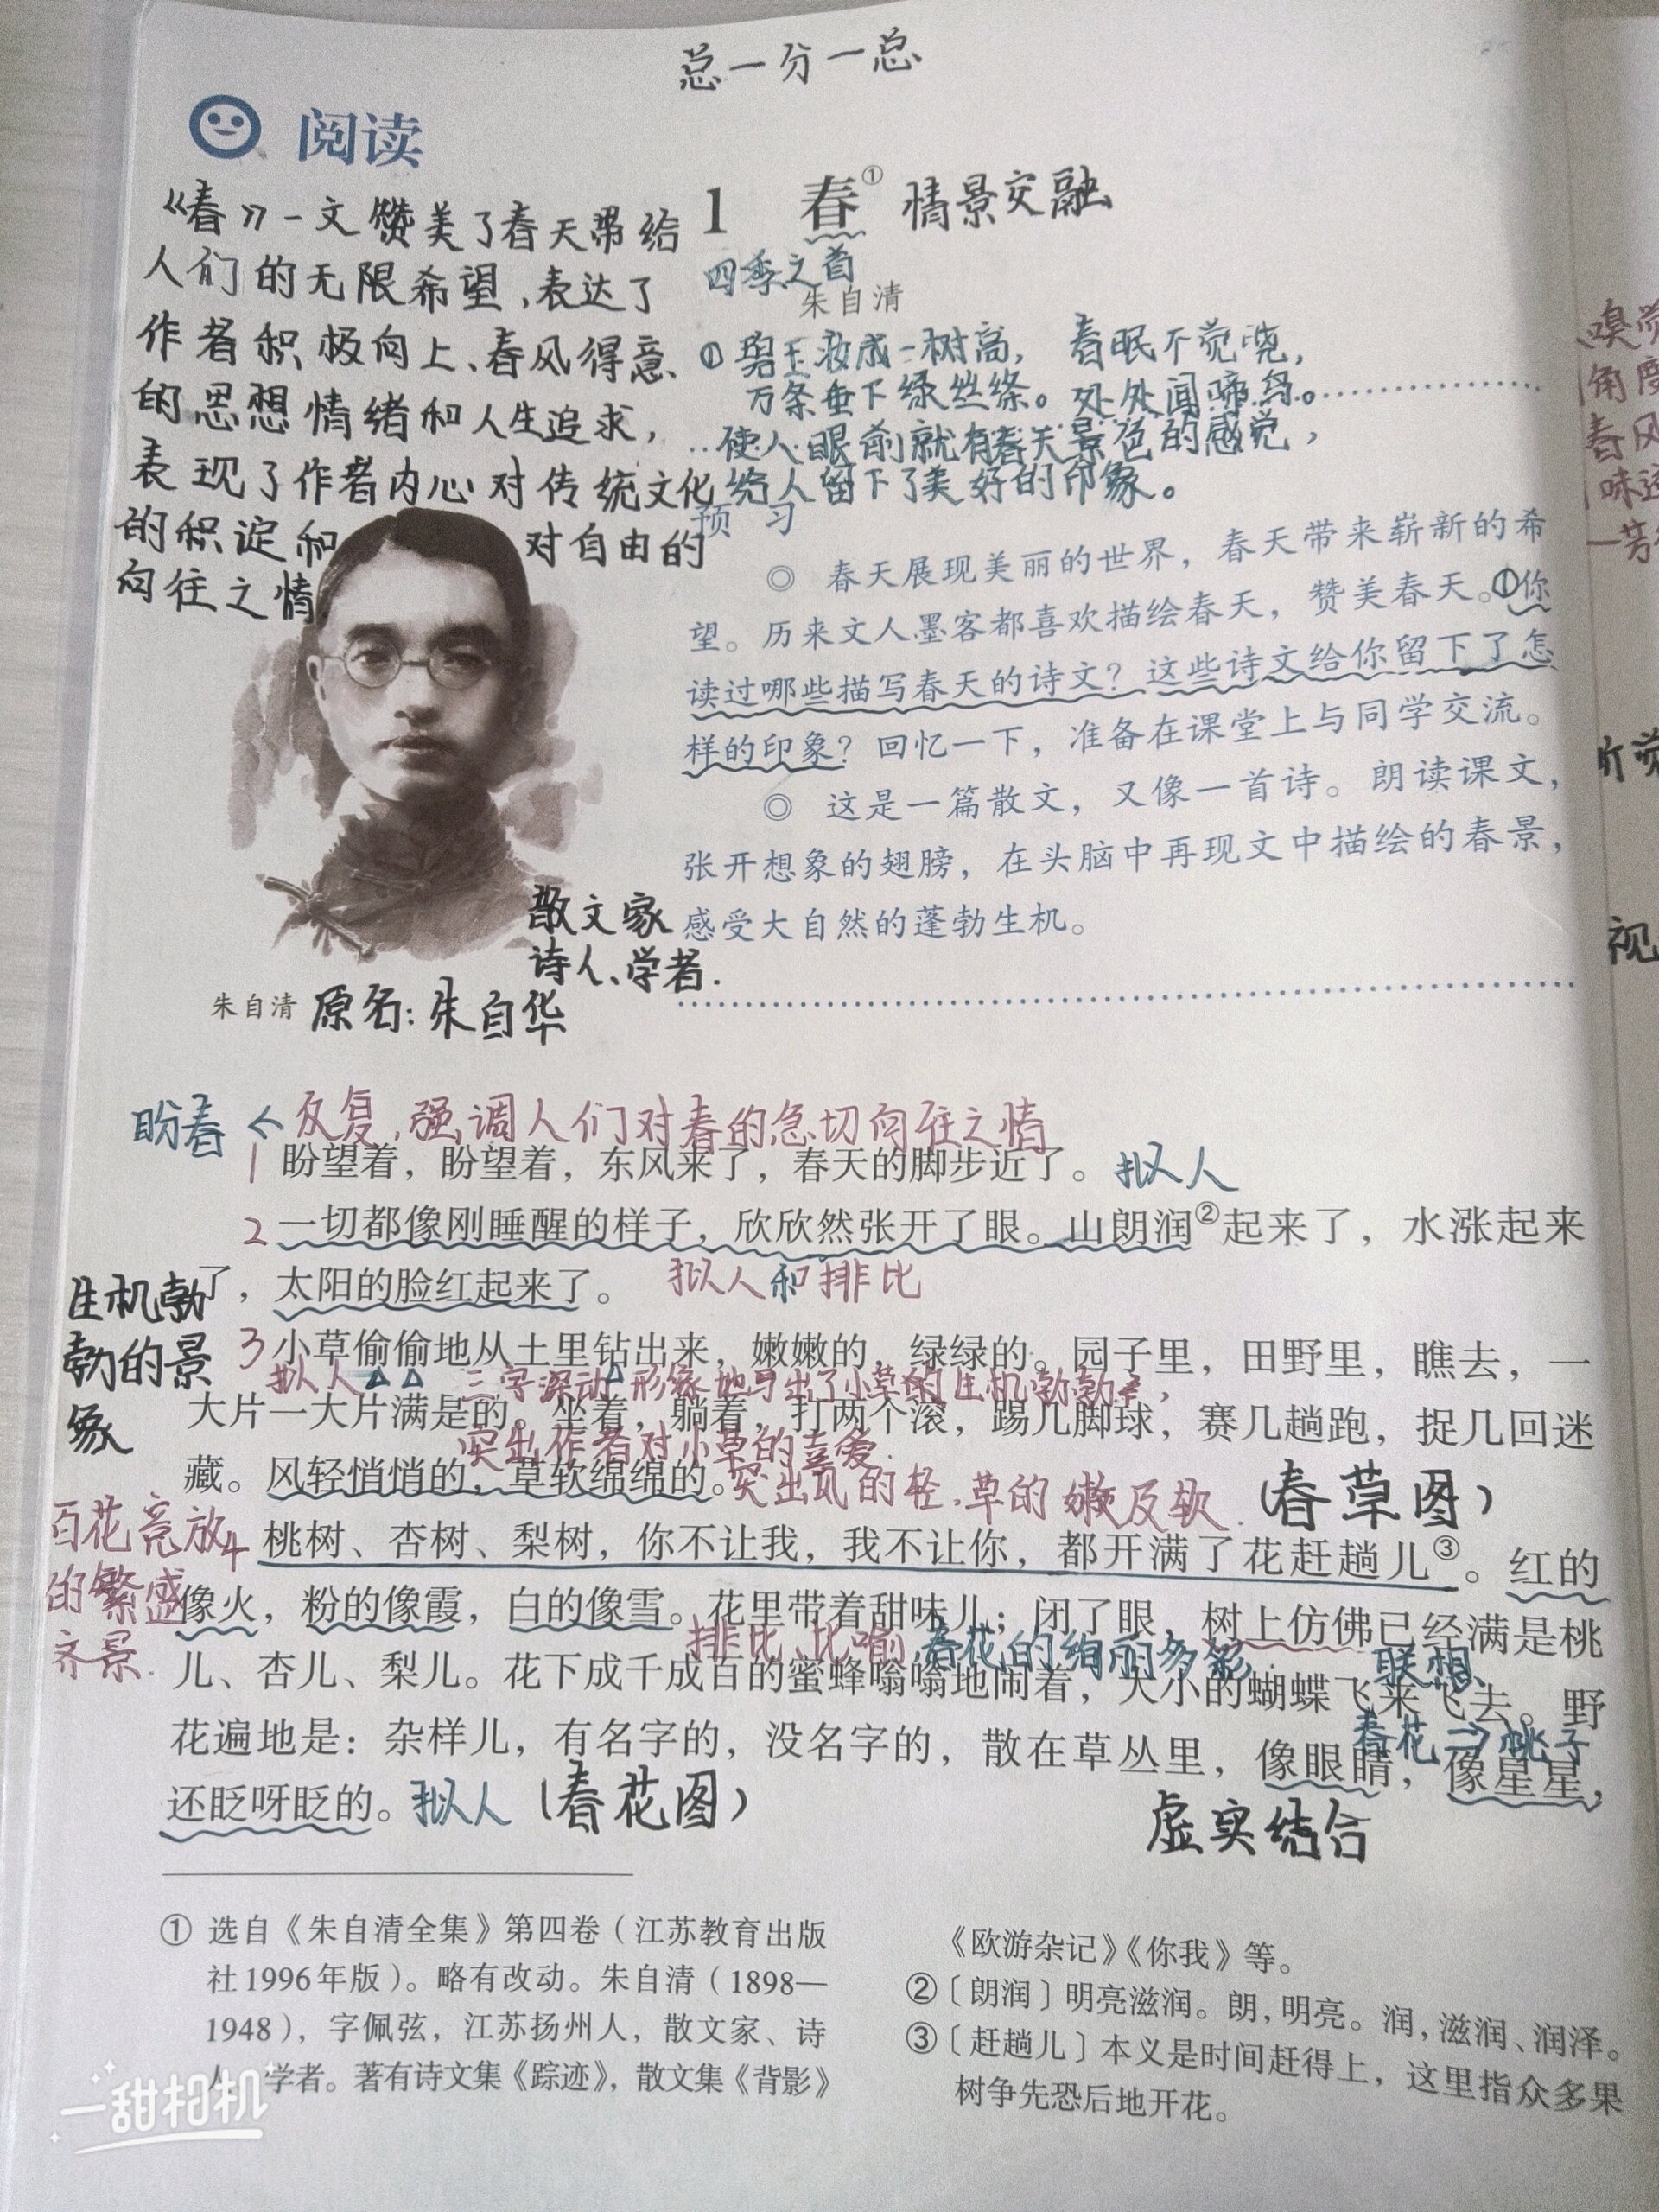 总一分一总
阅读
1 春① 情景交融
四季之首
朱自清
《春》一文赞美了春天带给
人们的无限希望,表达了
作者积极向上、春风得意
的思想情绪和人生追求,
表现了作者内心对传统文化
的积淀和对自由的
向往之情
①碧玉妆成一树高, 春眠不觉晓,
万条垂下绿丝绦。处处闻啼鸟。
使人眼前就有春天景色的感觉,
给人留下了美好的印象。
预习
◎ 春天展现美丽的世界,春天带来崭新的希
望。历来文人墨客都喜欢描绘春天,赞美春天。①你
读过哪些描写春天的诗文?这些诗文给你留下了怎
样的印象?回忆一下,准备在课堂上与同学交流。
◎ 这是一篇散文,又像一首诗。朗读课文,
张开想象的翅膀,在头脑中再现文中描绘的春景,
感受大自然的蓬勃生机。
散文家
诗人、学者.
朱自清 原名:朱自华
盼春 < 反复,强调人们对春的急切向往之情
1 盼望着,盼望着,东风来了,春天的脚步近了。拟人
2 一切都像刚睡醒的样子,欣欣然张开了眼。山朗润②起来了,水涨起来
了,太阳的脸红起来了。 拟人和排比
生机勃
勃的景
象
3 小草偷偷地从土里钻出来,嫩嫩的,绿绿的。园子里,田野里,瞧去,一
拟人 三字深动形象地写出了小草的生机勃勃,
大片一大片满是的。坐着,躺着,打两个滚,踢几脚球,赛几趟跑,捉几回迷
突出作者对小草的喜爱.
藏。风轻悄悄的,草软绵绵的。突出风的轻,草的嫩及软. (春草图)
百花竞放
的繁盛
齐景.
4 桃树、杏树、梨树,你不让我,我不让你,都开满了花赶趟儿③。红的
像火,粉的像霞,白的像雪。花里带着甜味儿;闭了眼,树上仿佛已经满是桃
排比、比喻,春花的绚丽多彩. 联想
儿、杏儿、梨儿。花下成千成百的蜜蜂嗡嗡地闹着,大小的蝴蝶飞来飞去。野
春花→桃子
花遍地是:杂样儿,有名字的,没名字的,散在草丛里,像眼睛,像星星,
还眨呀眨的。拟人 (春花图)
虚实结合
① 选自《朱自清全集》第四卷(江苏教育出版
社1996年版)。略有改动。朱自清(1898—
1948),字佩弦,江苏扬州人,散文家、诗
人、学者。著有诗文集《踪迹》,散文集《背影》
《欧游杂记》《你我》等。
②〔朗润〕明亮滋润。朗,明亮。润,滋润、润泽。
③〔赶趟儿〕本义是时间赶得上,这里指众多果
树争先恐后地开花。
一甜相机
嗅觉
角度
春风
味道
听觉
视